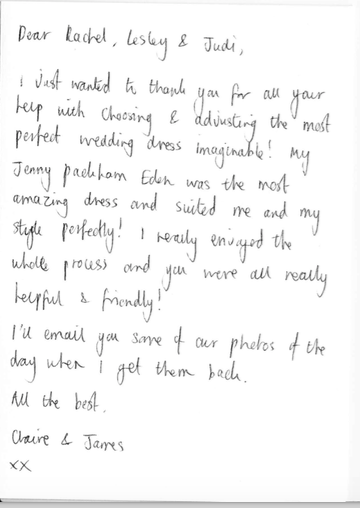 Dear Rachel, Lesley & Judi,
I just wanted to thank you for all your
help with choosing & adjusting the most
perfect wedding dress imaginable! My
Jenny packham Eden was the most
amazing dress and suited me and my
style perfectly! I really enjoyed the
whole process and you were all really
helpful & friendly!
I'll email you some of our photos of the
day when I get them back.
All the best.
Claire & James
xx